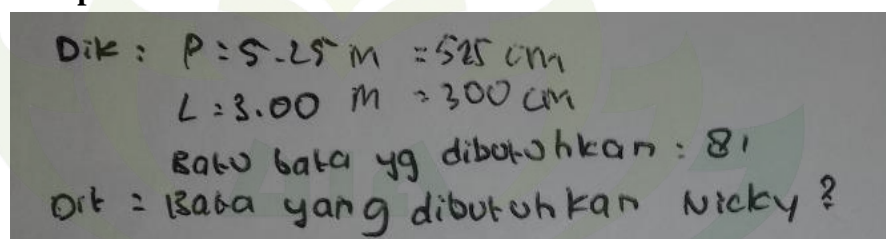 Dik : P = 5.25 m = 525 cm
L = 3.00 m = 300 cm
Batu bata yg dibutuhkan : 81
Dit = Bata yang dibutuhkan Nicky ?